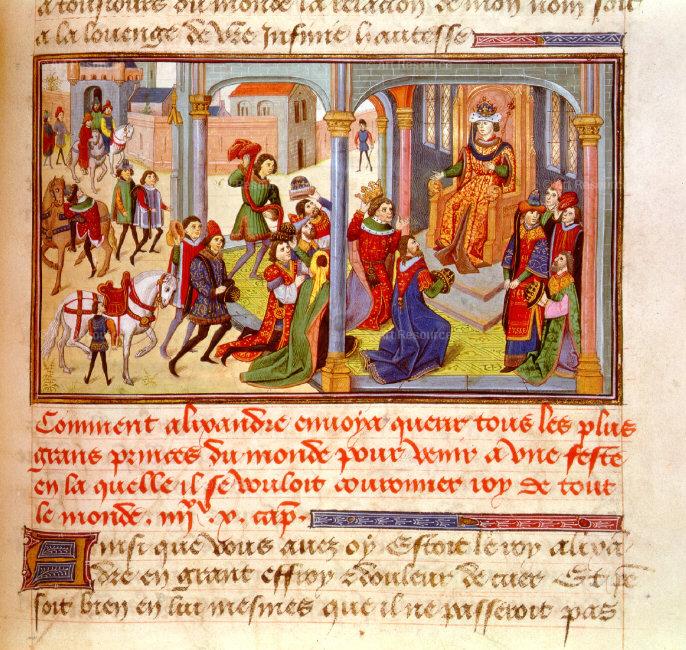 a tousjours du monde la relation de mon nom soit
a la louenge de vre Infinie hautesse
Art Resource
Art Resource
Comment alixandre envoya querir tous les plus
grans princes du monde pour venir a vne feste
en la quelle il se vouloit couronner roy de tout
le monde . iiij . v . cap.
Ainsi que vous auez oy Estoit le roy alixa
dre en grant effroy & douleur de cuer Et
soit bien en lui mesmes que il ne passeroit pas